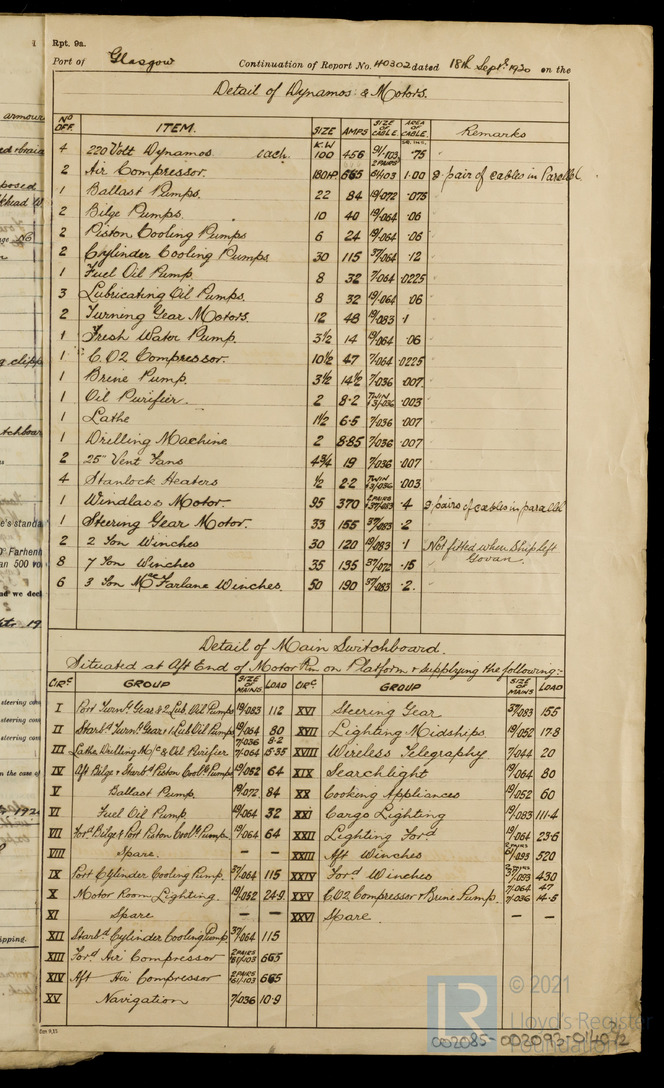 Rpt. 9a.
Port of Glasgow Continuation of Report No. 40302 dated 18th Septr 1920 on the
Detail of Dynamos & Motors.
No OFF. ITEM. SIZE AMPS SIZE OF CABLE. AREA OF CABLE. Remarks
K.W SQ. INS.
4 220 Volt Dynamos. each. 100 456 91/103 .75
2 Air Compressor. 180HP 665 2 PAIRS 61/103 1.00 2 pair of cables in Parallel
1 Ballast Pumps. 22 84 19/072 .075
2 Bilge Pumps. 10 40 19/064 .06
2 Piston Cooling Pumps 6 24 19/064 .06
2 Cylinder Cooling Pumps 30 115 37/064 .12
1 Fuel Oil Pump 8 32 7/064 .0225
3 Lubricating Oil Pumps. 8 32 19/064 .06
2 Turning Gear Motors. 12 48 19/083 .1
1 Fresh Water Pump. 3½ 14 19/064 .06
1 C.O2 Compressor. 10½ 47 7/064 .0225
1 Brine Pump. 3½ 14½ 7/036 .007
1 Oil Purifier. 2 8.2 TWIN 3/036 .003
1 Lathe 1½ 6.5 7/036 .007
1 Drilling Machine 2 8.85 7/036 .007
2 25" Vent Fans 4¾ 19 7/036 .007
4 Stanlock Heaters ½ 2.2 TWIN 3/036 .003
1 Windlass Motor. 95 370 2 PAIRS 37/083 .4 2 pairs of cables in parallel
1 Steering Gear Motor. 33 155 37/083 .2
2 2 Ton Winches 30 120 19/083 .1 Not fitted when Ship left
8 7 Ton Winches 35 135 37/072 .15 Govan.
6 3 Ton McFarlane Winches. 50 190 37/083 .2.
Detail of Main Switchboard.
Situated at Aft End of Motor Rm on Platform & supplying the following:-
CIRC GROUP SIZE OF MAINS LOAD CIRC. GROUP SIZE OF MAINS LOAD
I Port Turng Gear & 2 Lub. Oil Pumps 19/083 112 XVI Steering Gear 37/083 155
II Starbd Turng Gear & 1 Lub Oil Pumps 19/064 80 XVII Lighting Midships 19/052 17.8
7/036 8.2
III Lathe, Drilling M/c & Oil Purifier 7/064 15.35 XVIII Wireless Telegraphy 7/044 20
IV Aft Bilge & Starbd Piston Coolg Pumps 19/052 64 XIX Searchlight 19/064 80
V Ballast Pump. 19/072 84 XX Cooking Appliances 19/052 60
VI Fuel Oil Pump 19/064 32 XXI Cargo Lighting 19/083 111.4
VII Ford Bilge & Port Piston Coolg Pump. 19/064 64 XXII Lighting Ford 19/064 23.6
VIII Spare. — — XXIII Aft Winches 2 PAIRS 61/093 520
IX Port Cylinder Cooling Pump. 37/064 115 XXIV Ford Winches 2 PAIRS 37/093 430
X Motor Room Lighting. 19/052 24.9 XXV C.O2 Compressor & Brine Pump. 7/064 47
7/036 14.5
XI Spare — — XXVI Spare. — —
XII Starbd Cylinder Cooling Pump 37/064 115
XIII Ford Air Compressor 2 PAIRS 61/103 665
XIV Aft Air Compressor 2 PAIRS 61/103 665
XV Navigation 7/036 10.9
LR
© 2021
Lloyd's Register
Foundation
002085-002093-0140